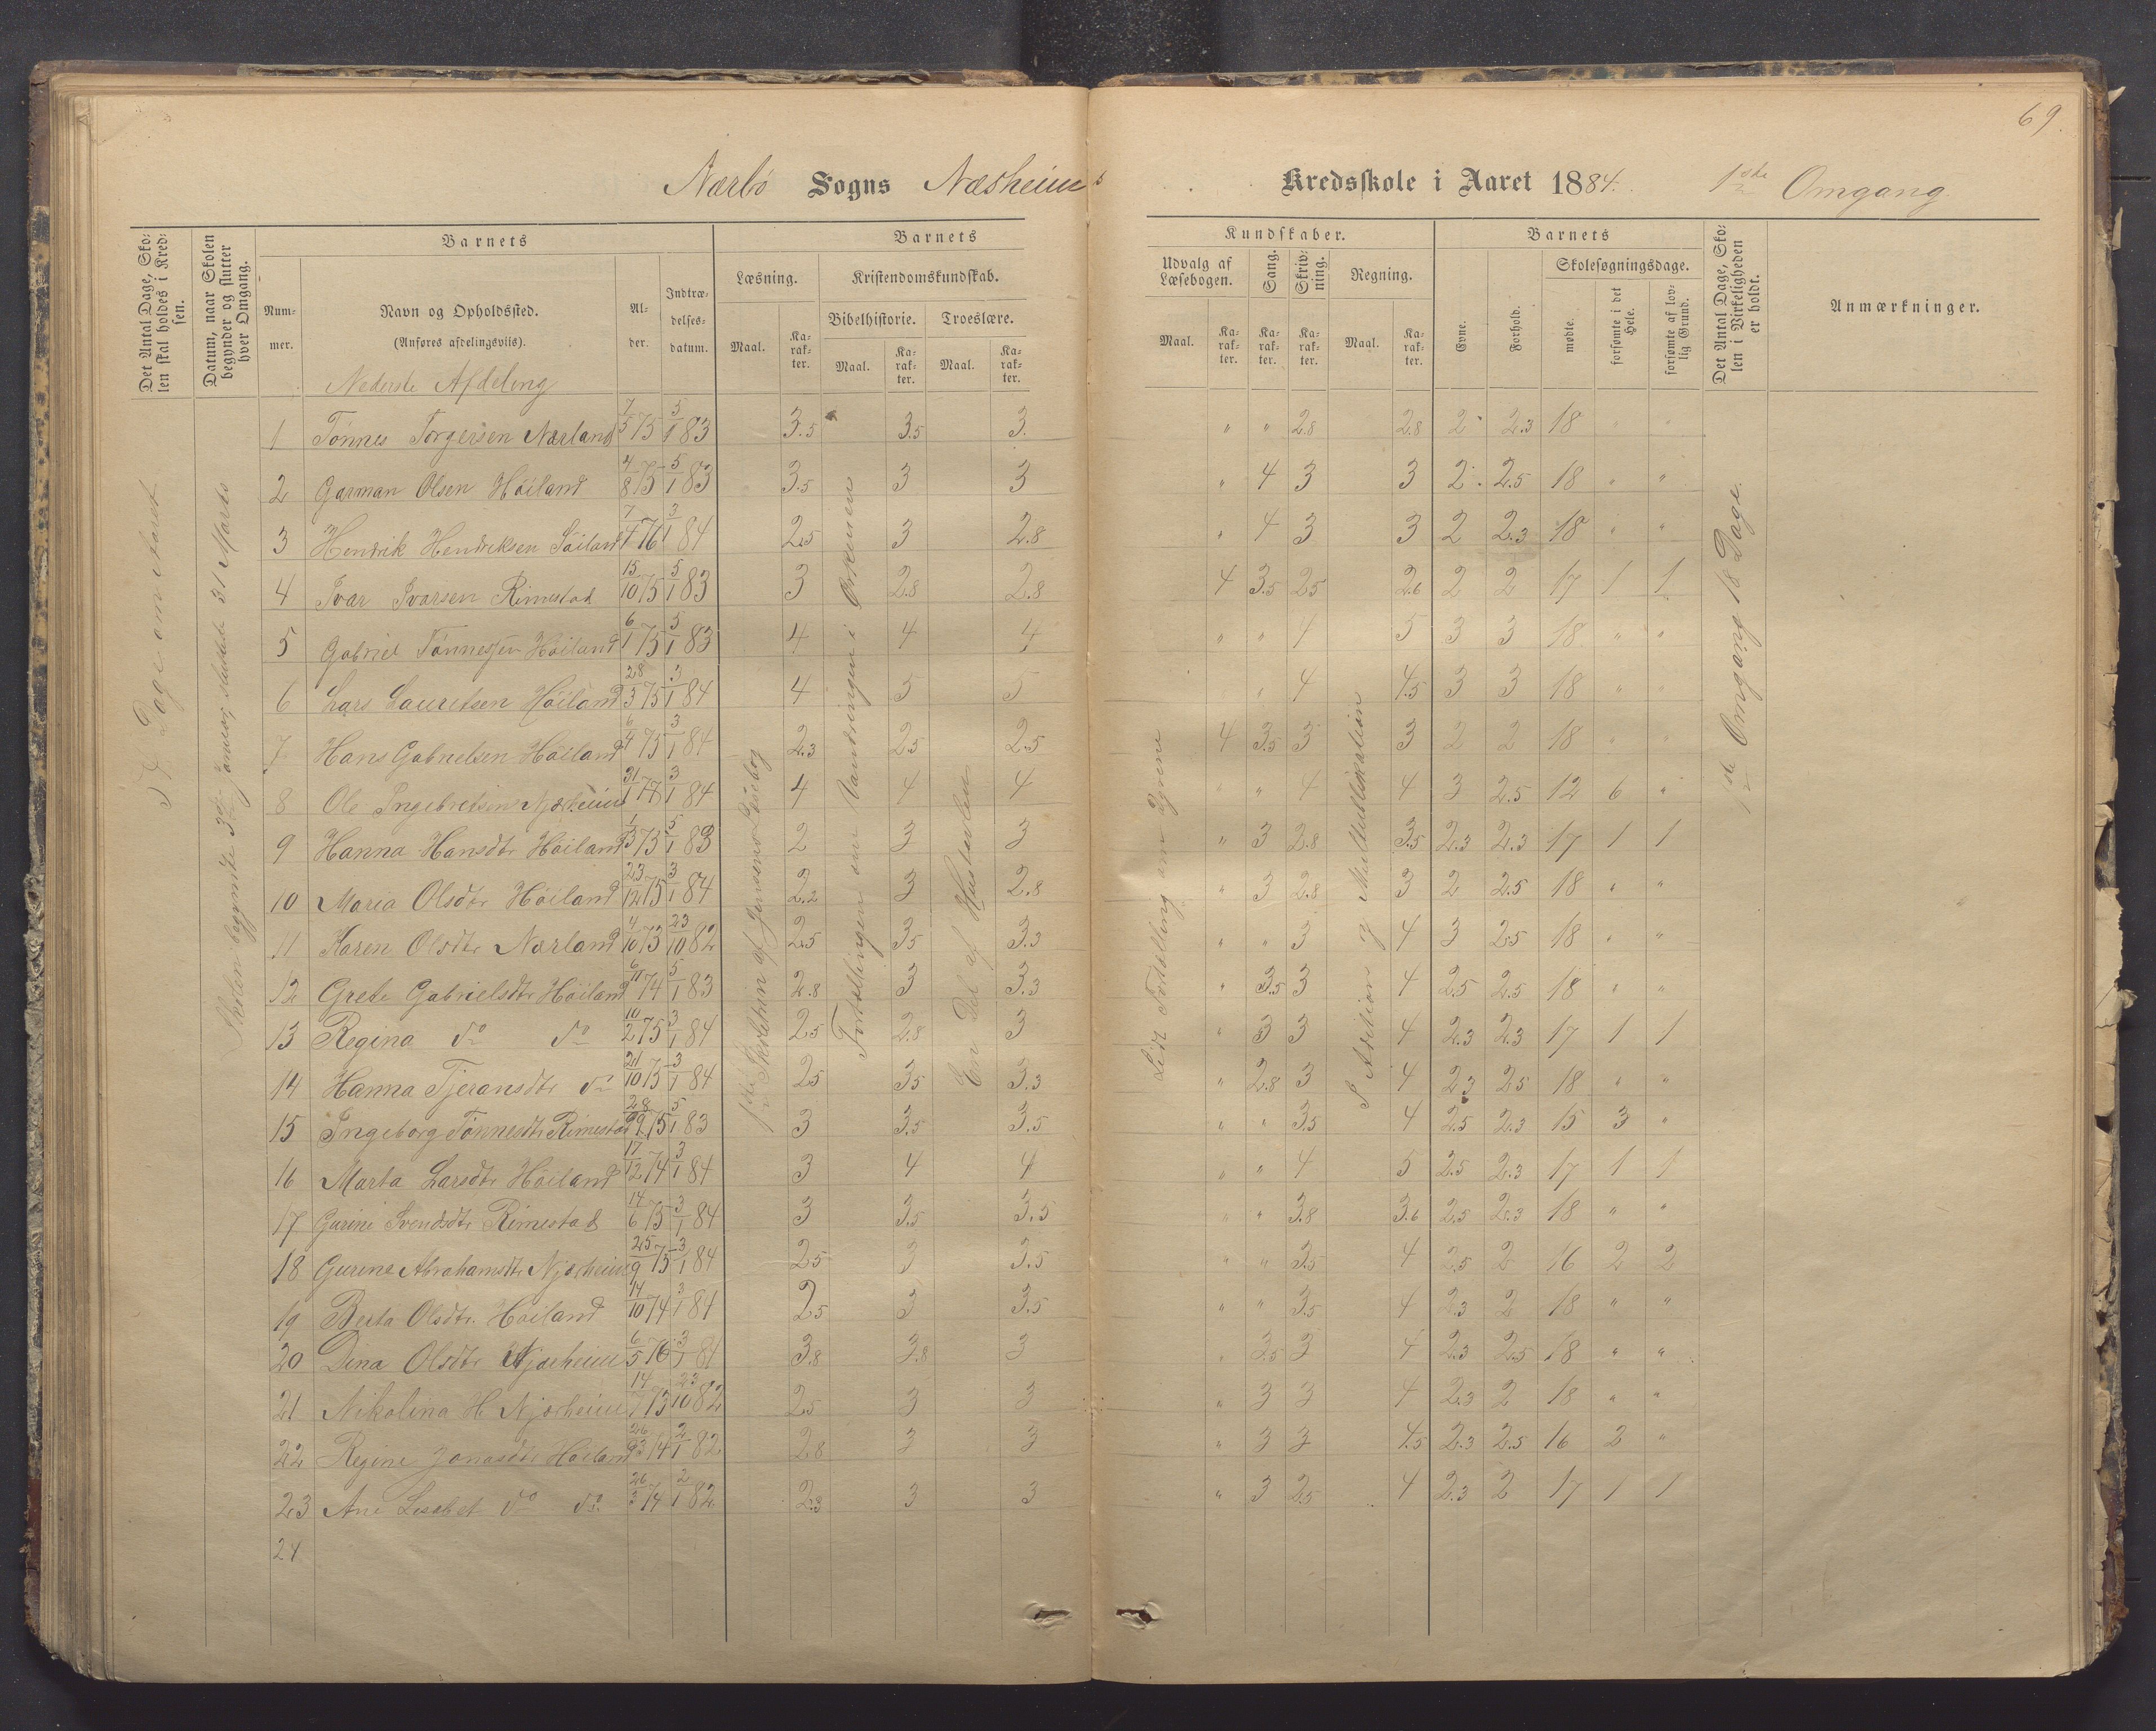 69.
Nærbø Sogns Næsheims Kredsskole i Aaret 1884. 1ste Omgang
Det Antal Dage, Skolen skal holdes i Kredsen.
Datum, naar Skolen begynder og slutter hver Omgang.
Barnets
Barnets
Kundskaber.
Barnets
Det Antal Dage, Skolen i Virkeligheden er holdt.
Anmærkninger.
Nummer.
Navn og Opholdssted.
(Anføres afdelingsviis).
Alder.
Indtrædelsesdatum.
Læsning.
Kristendomskundskab.
Bibelhistorie.
Troeslære.
Maal.
Karakter.
Maal.
Karakter.
Maal.
Karakter.
Udvalg af Læsebogen.
Sang.
Skrivning.
Regning.
Maal.
Karakter.
Karakter.
Karakter.
Maal.
Karakter.
Evne.
Forhold.
Skolesøgningsdage.
mødte.
forsømte i det Hele.
forsømte af lovlig Grund.
Nederste Afdeling
1 Tönnes Torgersen Nærland 7/5 75 5/1 83 3.5 3.5 3. " " 2.8 2.8 2 2.3 18 " "
2 Garman Olsen Höiland 4/8 75 5/1 83 3.5 3 3 " 4 3 3 2 2.5 18 " "
3 Hendrik Hendriksen 76 3/1 84 2.5 3 2.8 " 4 3 3 2 2.3 18 " "
4 Ivar Ivarsen Rimestad 15/10 75 5/1 83 3 2.8 2.8 4 3.5 2.5 2.6 2 2 17 1 1
5 Gabriel Tönnessen Höiland 6/1 75 5/1 83 4 4 4 " " 4 5 3 3 18 " "
6 Lars Lauritsen Höiland 28/3 75 3/1 84 4 5 5 " 4 4.5 3 3 18 " "
7 Hans Gabrielsen Höiland 6/4 75 3/1 84 2.3 2.5 2.5 4 3.5 3 3 2 2 18 " "
8 Ole Ingebretsen Njærheim 31/1 3/1 84 4 4 4 " " 4 4 3 2.5 12 6 "
9 Hanna Hansdtr Höiland 1/3 73 5/1 83 2 3 3 " 3 2.8 3.5 2.3 2.3 17 1 1
10 Maria Olsdtr Höiland 23/12 75 3/1 84 2.2 3 2.8 " 3 2.8 3 2 2.5 18 " "
11 Karen Olsdtr Nærland 4/10 73 23/10 82 2.5 3.5 3.3 " " 3 4 3 2.5 18 " "
12 Grete Gabrielsdtr Höiland 6/11 74 5/1 83 2.8 3 3.3 " 3.5 3 4 2.5 2.5 18 " "
13 Regina do do 10/2 75 3/1 84 2.5 2.8 3 " 3 3 4 2.3 2.3 17 1 1
14 Hanna Tjeransdtr do 21/10 75 3/1 84 2.5 3.5 3.3 " 2.8 3 4 2.3 2.5 18 " "
15 Ingeborg Tönnesdtr Rimestad 28/9 75 5/1 83 3 3.5 3.5 " " 3.5 4 2.5 2.3 15 3 "
16 Marta Larsdtr Höiland 17/12 74 3/1 84 3 4 4 " " 4 5 2.5 2.3 17 1 1
17 Gurine Svendsdtr Rimestad 14/6 75 3/1 84 3 3.5 3.5 " " 3.8 3.6 2.5 2.3 18 " "
18 Gurine Abrahamsdtr Njærheim 25/9 75 3/1 84 2.5 3 3.5 " " 3.5 4 2.5 2 16 2 2
19 Berta Olsdtr. Höiland 14/10 74 3/1 84 2.5 3 3.5 " " 3.5 4 2.3 2 18 " "
20 Dina Olsdtr Njærheim 6/5 76 3/1 84 3.8 3.8 3 " 3.5 3 4 2.3 2.5 18 " "
21 Nikolina H Njærheim 14/7 73 23/10 82 2.5 3 3 " 3 3 4 2.3 2 18 " "
22 Regine Jonasdtr Höiland 74 2/1 82 2.8 3 3 " 3 3 4.5 2.3 2.5 16 2 "
23 Ane Lisabet do do 26/3 74 2/1 82 2.3 3 3 " 3 2.5 4 2.3 2 17 1 1
24
Dage om Aaret
Skolen begyndte 3die Januar, sluttede 31 Marts
1ste Skoletrin af Jensens Læsebog
Fortællingen om Vandringen i Örkenen
En Del af Hustavlen
Lidt Fortælling om Dyrene
I Addition og Multiplikation
1ste Omgang 18 Dage.